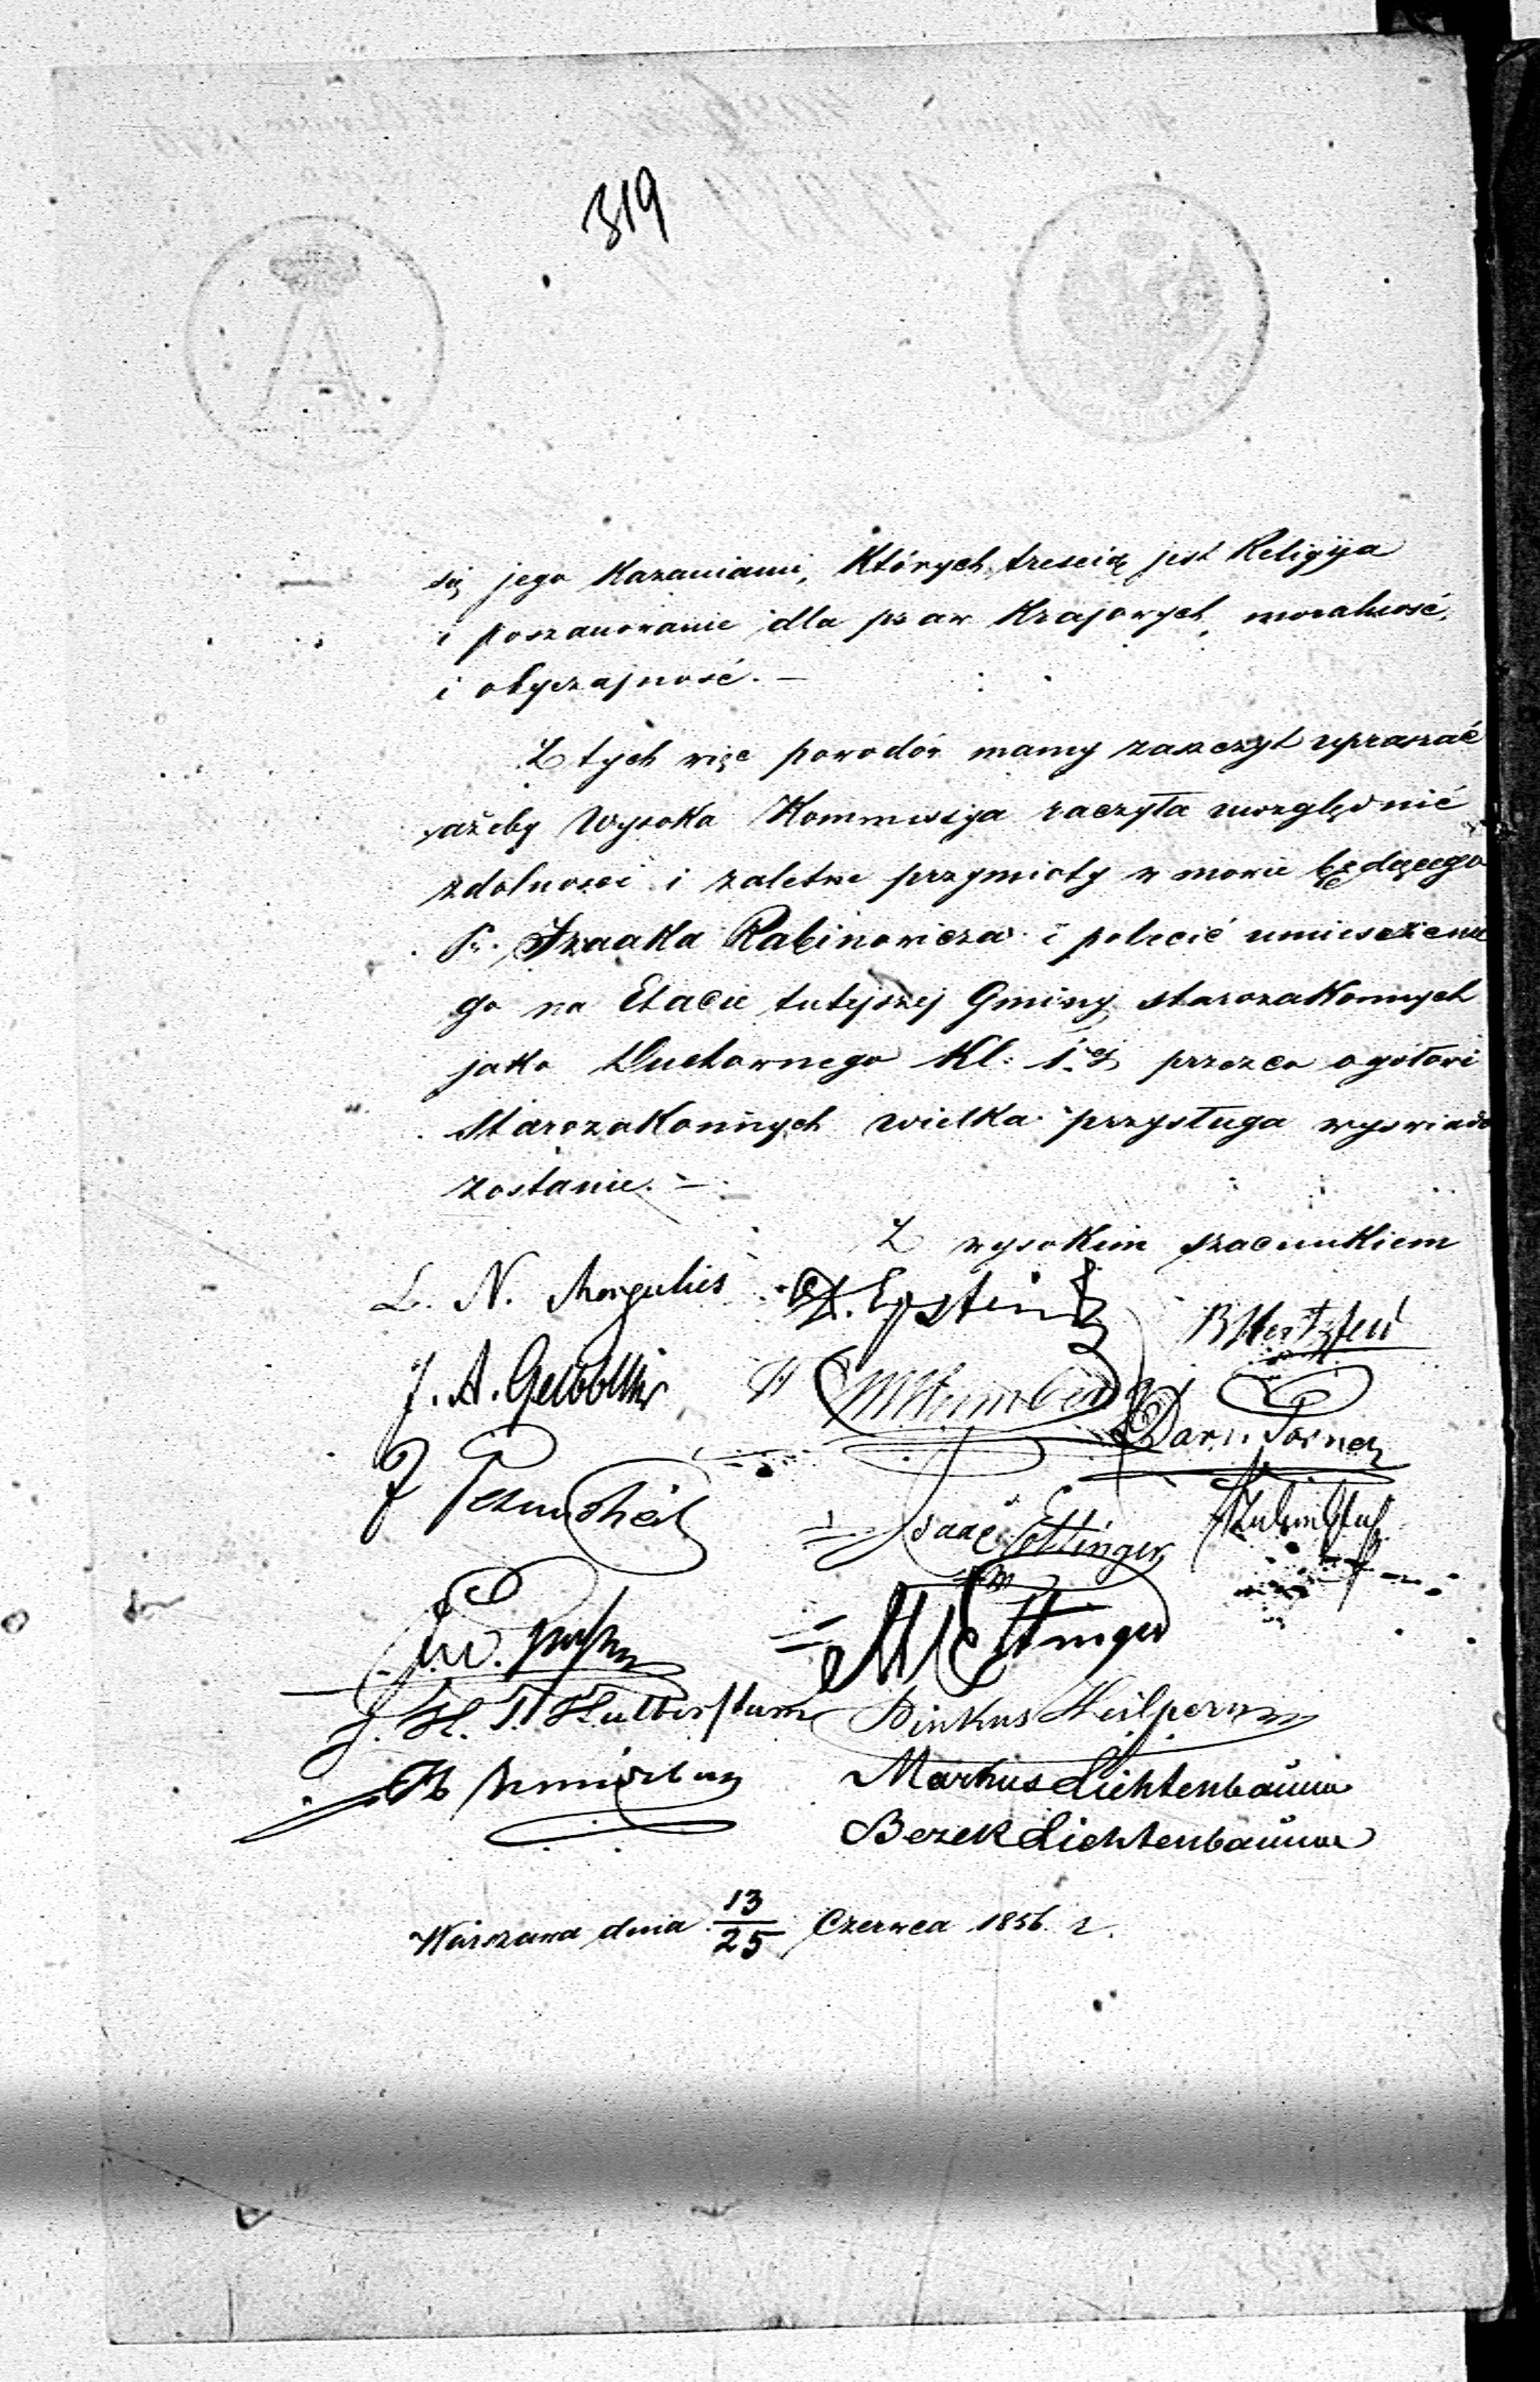 319
się jego Kazaniami, Których treścią jest Religija
i poszanowanie dla praw Krajowych, moralność,
i obyczajność. —
Z tych więc powodów mamy zaszczyt upraszać
ażeby Wysoka Kommissya raczyła uwzględnić
zdolności i zaletne przymioty w mowie będącego
P. Izaaka Rabinowicza i polecić umieszczenie
go na Etacie tutejszej Gminy starozakonnych
jako Duchownego Kl: 1ej przez co ogółowi
Starozakonnych wielka przysługa wyświad
zostanie. —
Z wysokim szacunkiem
L. N. Margulies
Epstein
J. A.
Dawid Posner
Isaac Ettinger
M Ettinger
J. H. T. Halberstam
Pinkus Heilpern
Markus Lichtenbaum
Berek Lichtenbaum
Warszawa dnia 13/25 Czerwca 1856 r.